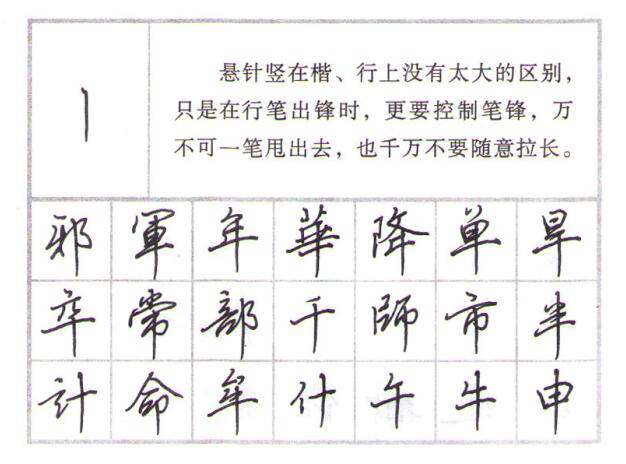 悬针竖在楷、行上没有太大的区别，
只是在行笔出锋时，更要控制笔锋，万
不可一笔甩出去，也千万不要随意拉长。
邪 軍 年 華 降 单 旱
卒 常 部 千 師 市 半
計 命 牟 什 午 牛 申